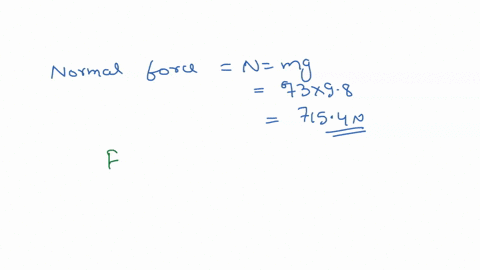 Normal force = N = mg
= 73×9.8
= 715.4 N
F